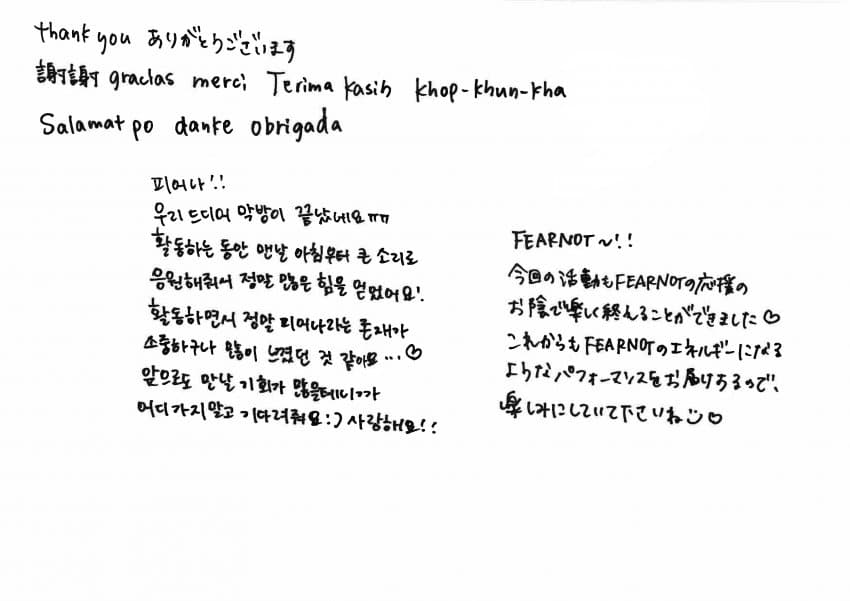 thank you ありがとうございます
謝謝 gracias merci Terima kasih khop-khun-kha
Salamat po danke obrigada
피어나!!
우리 드디어 막방이 끝났네요ㅠㅠ
활동하는 동안 맨날 아침부터 큰 소리로
응원해줘서 정말 많은 힘을 얻었어요!
활동하면서 정말 피어나라는 존재가
소중하구나 많이 느꼈던 것 같아요...♡
앞으로도 만날 기회가 많을테니까
어디가지말고 기다려줘요:) 사랑해요!!
FEARNOT~!!
今回の活動もFEARNOTの応援の
お陰で楽しく終えることができました♡
これからもFEARNOTのエネルギーになる
ようなパフォーマンスをお届けするので、
楽しみにしていて下さいね☺♡